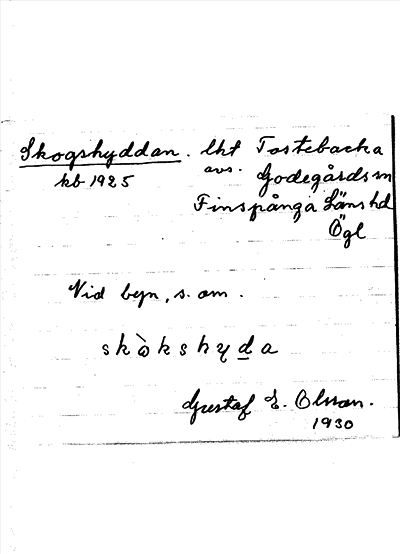 Skogshyddan. lht Tostebacka
kb 1925 avs. Godegårds sn
Finspånga Läns hd
Ögl
Vid byn, s. om.
skòkshyda
Gustaf E. Olsson.
1930